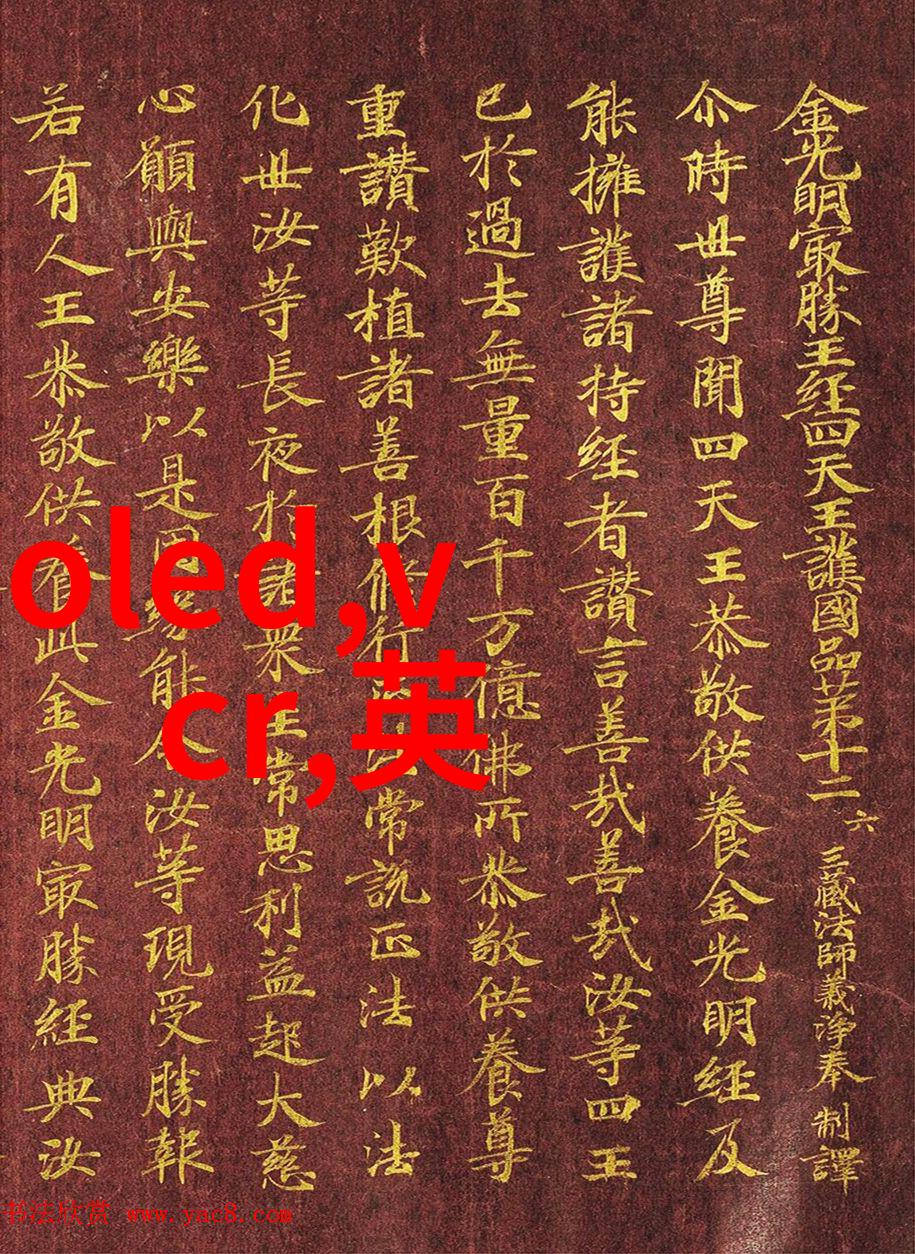 金光明冣勝王經四天王護國品第十二 六 三藏法師義淨奉 制譯
尒時世尊聞四天王恭敬供養金光明經及
能擁護諸持經者讃言善哉善哉汝等四王
已於過去無量百千万億佛所恭敬供養尊
重讃歎植諸善根修行常説正法以法
化世汝等長夜於諸衆生常思利益起大慈
心願與安樂以是因緣能令汝等現受勝報
若有人王恭敬供養此金光明冣勝經典汝
oled,v
cr,英
书法欣赏 www.yac8.com